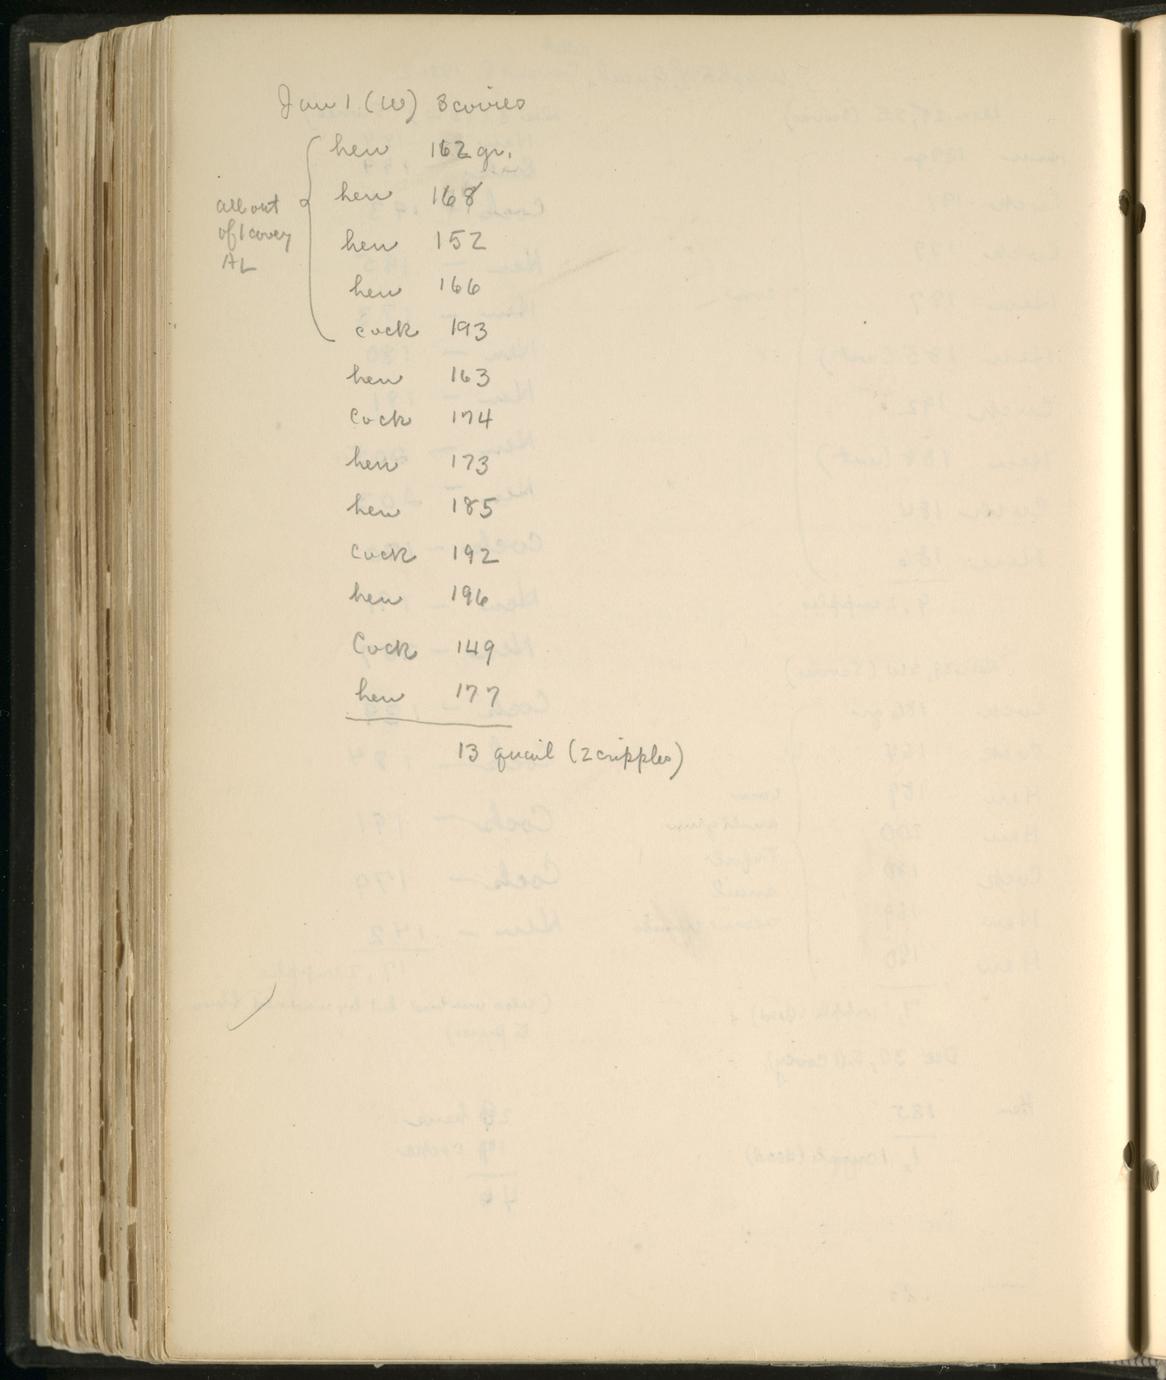 Jan 1 (W) 3 covies
hen 162 gr.
hen 168
all out
of 1 covey
AL
hen 152
hen 166
cock 193
hen 163
Cock 174
hen 173
hen 185
Cock 192
hen 196
Cock 149
hen 177
13 quail (2 cripples)